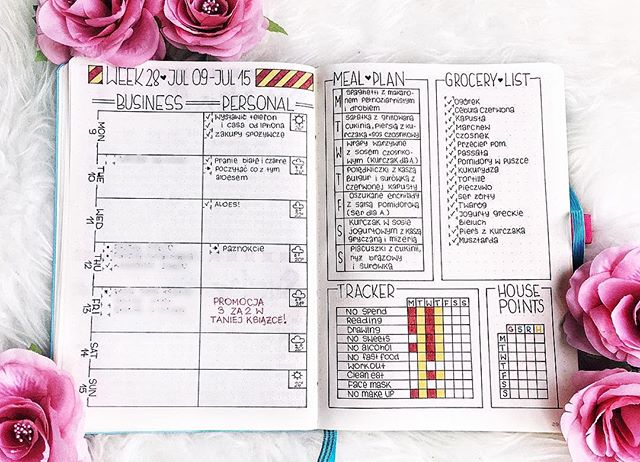 WEEK 28 ♥ JUL 09-JUL 15
BUSINESS PERSONAL
MON
9
Wystawić telefon
i case do iPhona
zakupy spożywcze
TUE
10
Pranie białe i czarne
Poczytać co z tym
aloesem
WED
11
ALOES!
THU
12
Paznokcie
FRI
13
PROMOCJA
3 ZA 2 W
TANIEJ KSIĄŻCE!
SAT
14
SUN
15
MEAL ♥ PLAN
M
Spaghetti z makaro-
nem pełnoziarnistym
i drobiem
T
Sałatka z grillowaną
cukinią, piersią z kur-
czaka + sos czosnkowy
W
Wrapy warzywne
z sosem czosnko-
wym (kurczak dla A.)
T
Polędwiczki z kaszą
bulgur i surówką z
czerwonej kapusty
F
Oszukane enchilady
z salsą pomidorową
(ser dla A.)
S
Kurczak w sosie
jogurtowym z kaszą
gryczaną i mizerią
S
Placuszki z cukinii,
ryż brązowy
i surówka
GROCERY ♥ LIST
Ogórek
Cebula czerwona
Kapusta
Marchew
Czosnek
Przecier pom.
Passata
Pomidory w puszce
Kukurydza
Tortille
Pieczywo
Ser żółty
Twaróg
Jogurty greckie
Bieluch
Pierś z kurczaka
Musztarda
TRACKER
M T W T F S S
No spend
Reading
Drawing
No sweets
No alcohol
No fast food
Workout
Clean eat
Face mask
No make up
HOUSE
POINTS
G S R H
M
T
W
T
F
S
S